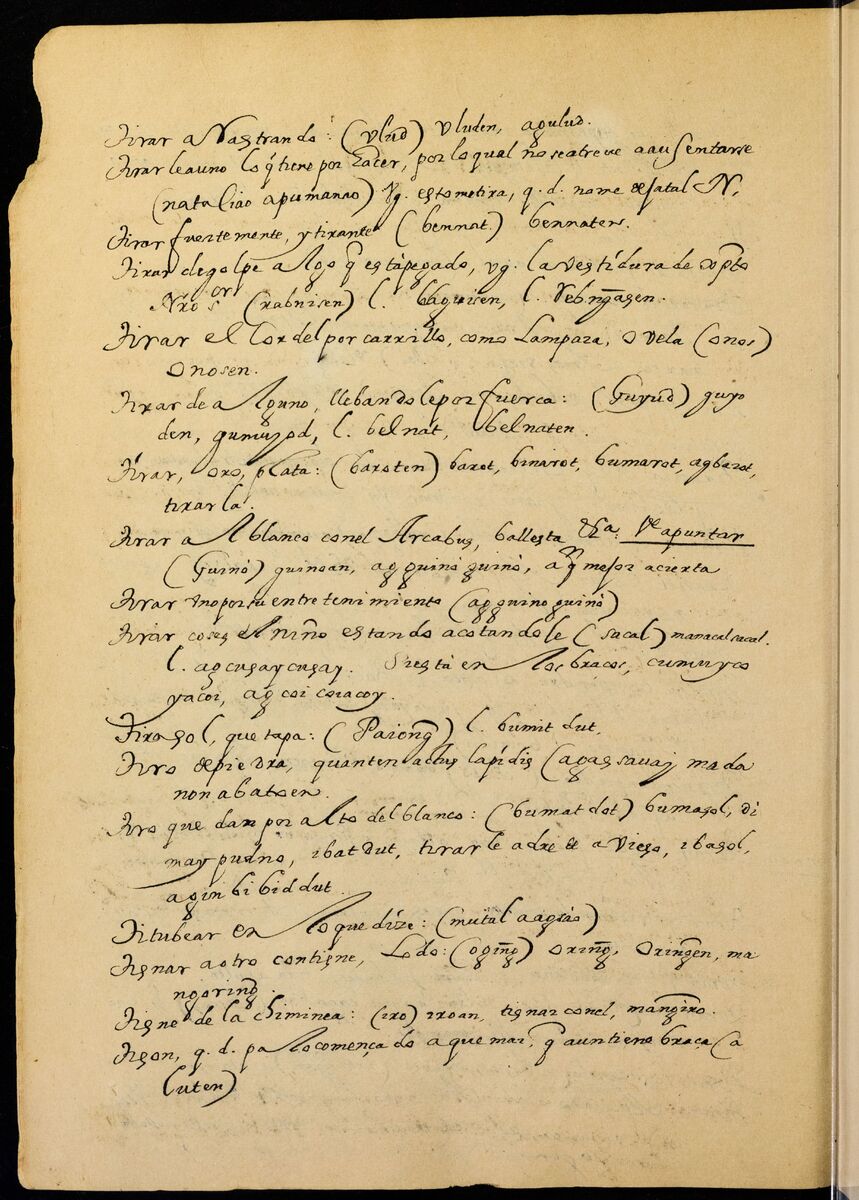 Tirar aRastrando: (vlud) vluden, agulud.
Tirarleauno lo q̃ tiene por hacer, por lo qual no seatreve aausentarse
(natalião apumanao) Vg. estometira, q. d. nome dejatal N,
Tirar fuertemente, y tirante (bennat) bennaten.
Tirar degolpe aAlgo q̃ estàpegado, vg. la vestidura de xp̃to
Nr̃o Sor (rabnisen) l.
Tirar el Cordel por carrillo, como Lampara, o vela (onos)
onosen.
Tirar de aAlguno, llebandole por fuerca: (Guyud) guyo
den, gumuyod, l. belnat, belnaten.
Tirar, oro, plata: (baroten) barot, binarot, bumarot, agbarot,
tirarla.
Tirar aAl blanco conel Arcabus, ballesta &a. Ve apuntar
(Guinò) guinoan, agguinoguinò, aq̃ mejor acierta
Tirar vno por su entretenimiento (agguinoguinò)
Tirar coses el niño estando acostandole (sacal) manacalsacal.
l. agcusaycusay. Siestà en Alos braços, cumuyco
yacoi, agcoicoiacoy.
Tirasol, que tapa: (Paiong̃) l. bumit dut,
Tiro depiedra, quanten actus lapidis (agassavay mada
nonabatoen.
Tiro que dan por aAlto del blanco: (bumatdot) bumasol, di
may pudno, ibatdut, tirarle adrede aviego, ibasol,
aginbibiddut.
Titubear en Alo que dize: (mutal aagsao)
Tisnar aotro contisne, Lodo: (oging̃) oring̃, oringen, ma
ngoring̃.
Tisne de la chiminea: (iro) iroan, tisnar conel, mangiro.
Tison, q. d. palo començado aquemar, q̃ auntiene braça (a
luten)